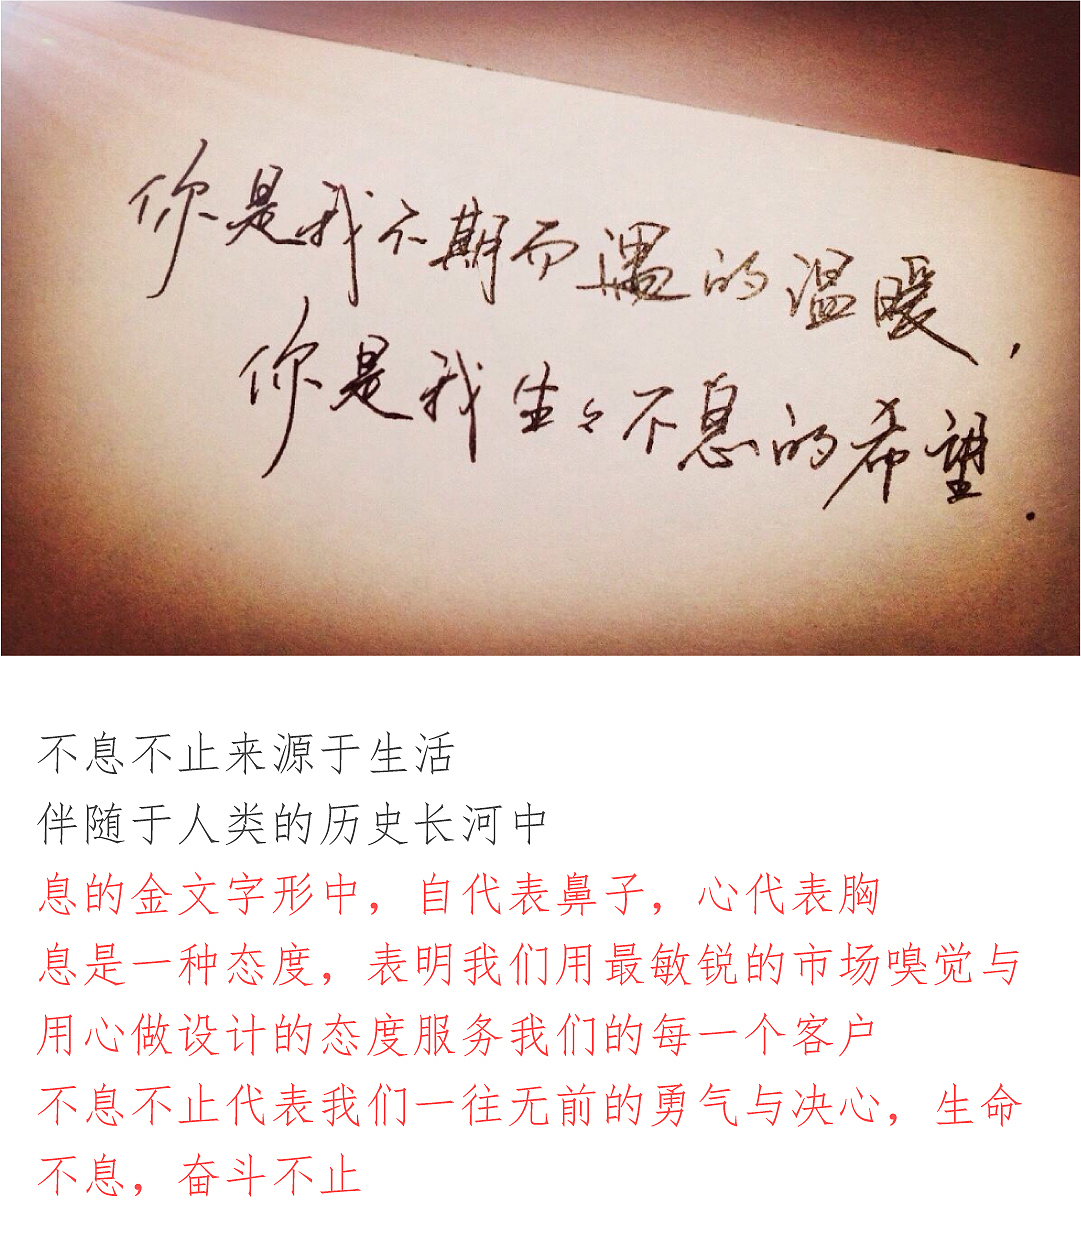 你是我不期而遇的温暖，
你是我生々不息的希望.
不息不止来源于生活
伴随于人类的历史长河中
息的金文字形中，自代表鼻子，心代表胸
息是一种态度，表明我们用最敏锐的市场嗅觉与
用心做设计的态度服务我们的每一个客户
不息不止代表我们一往无前的勇气与决心，生命
不息，奋斗不止